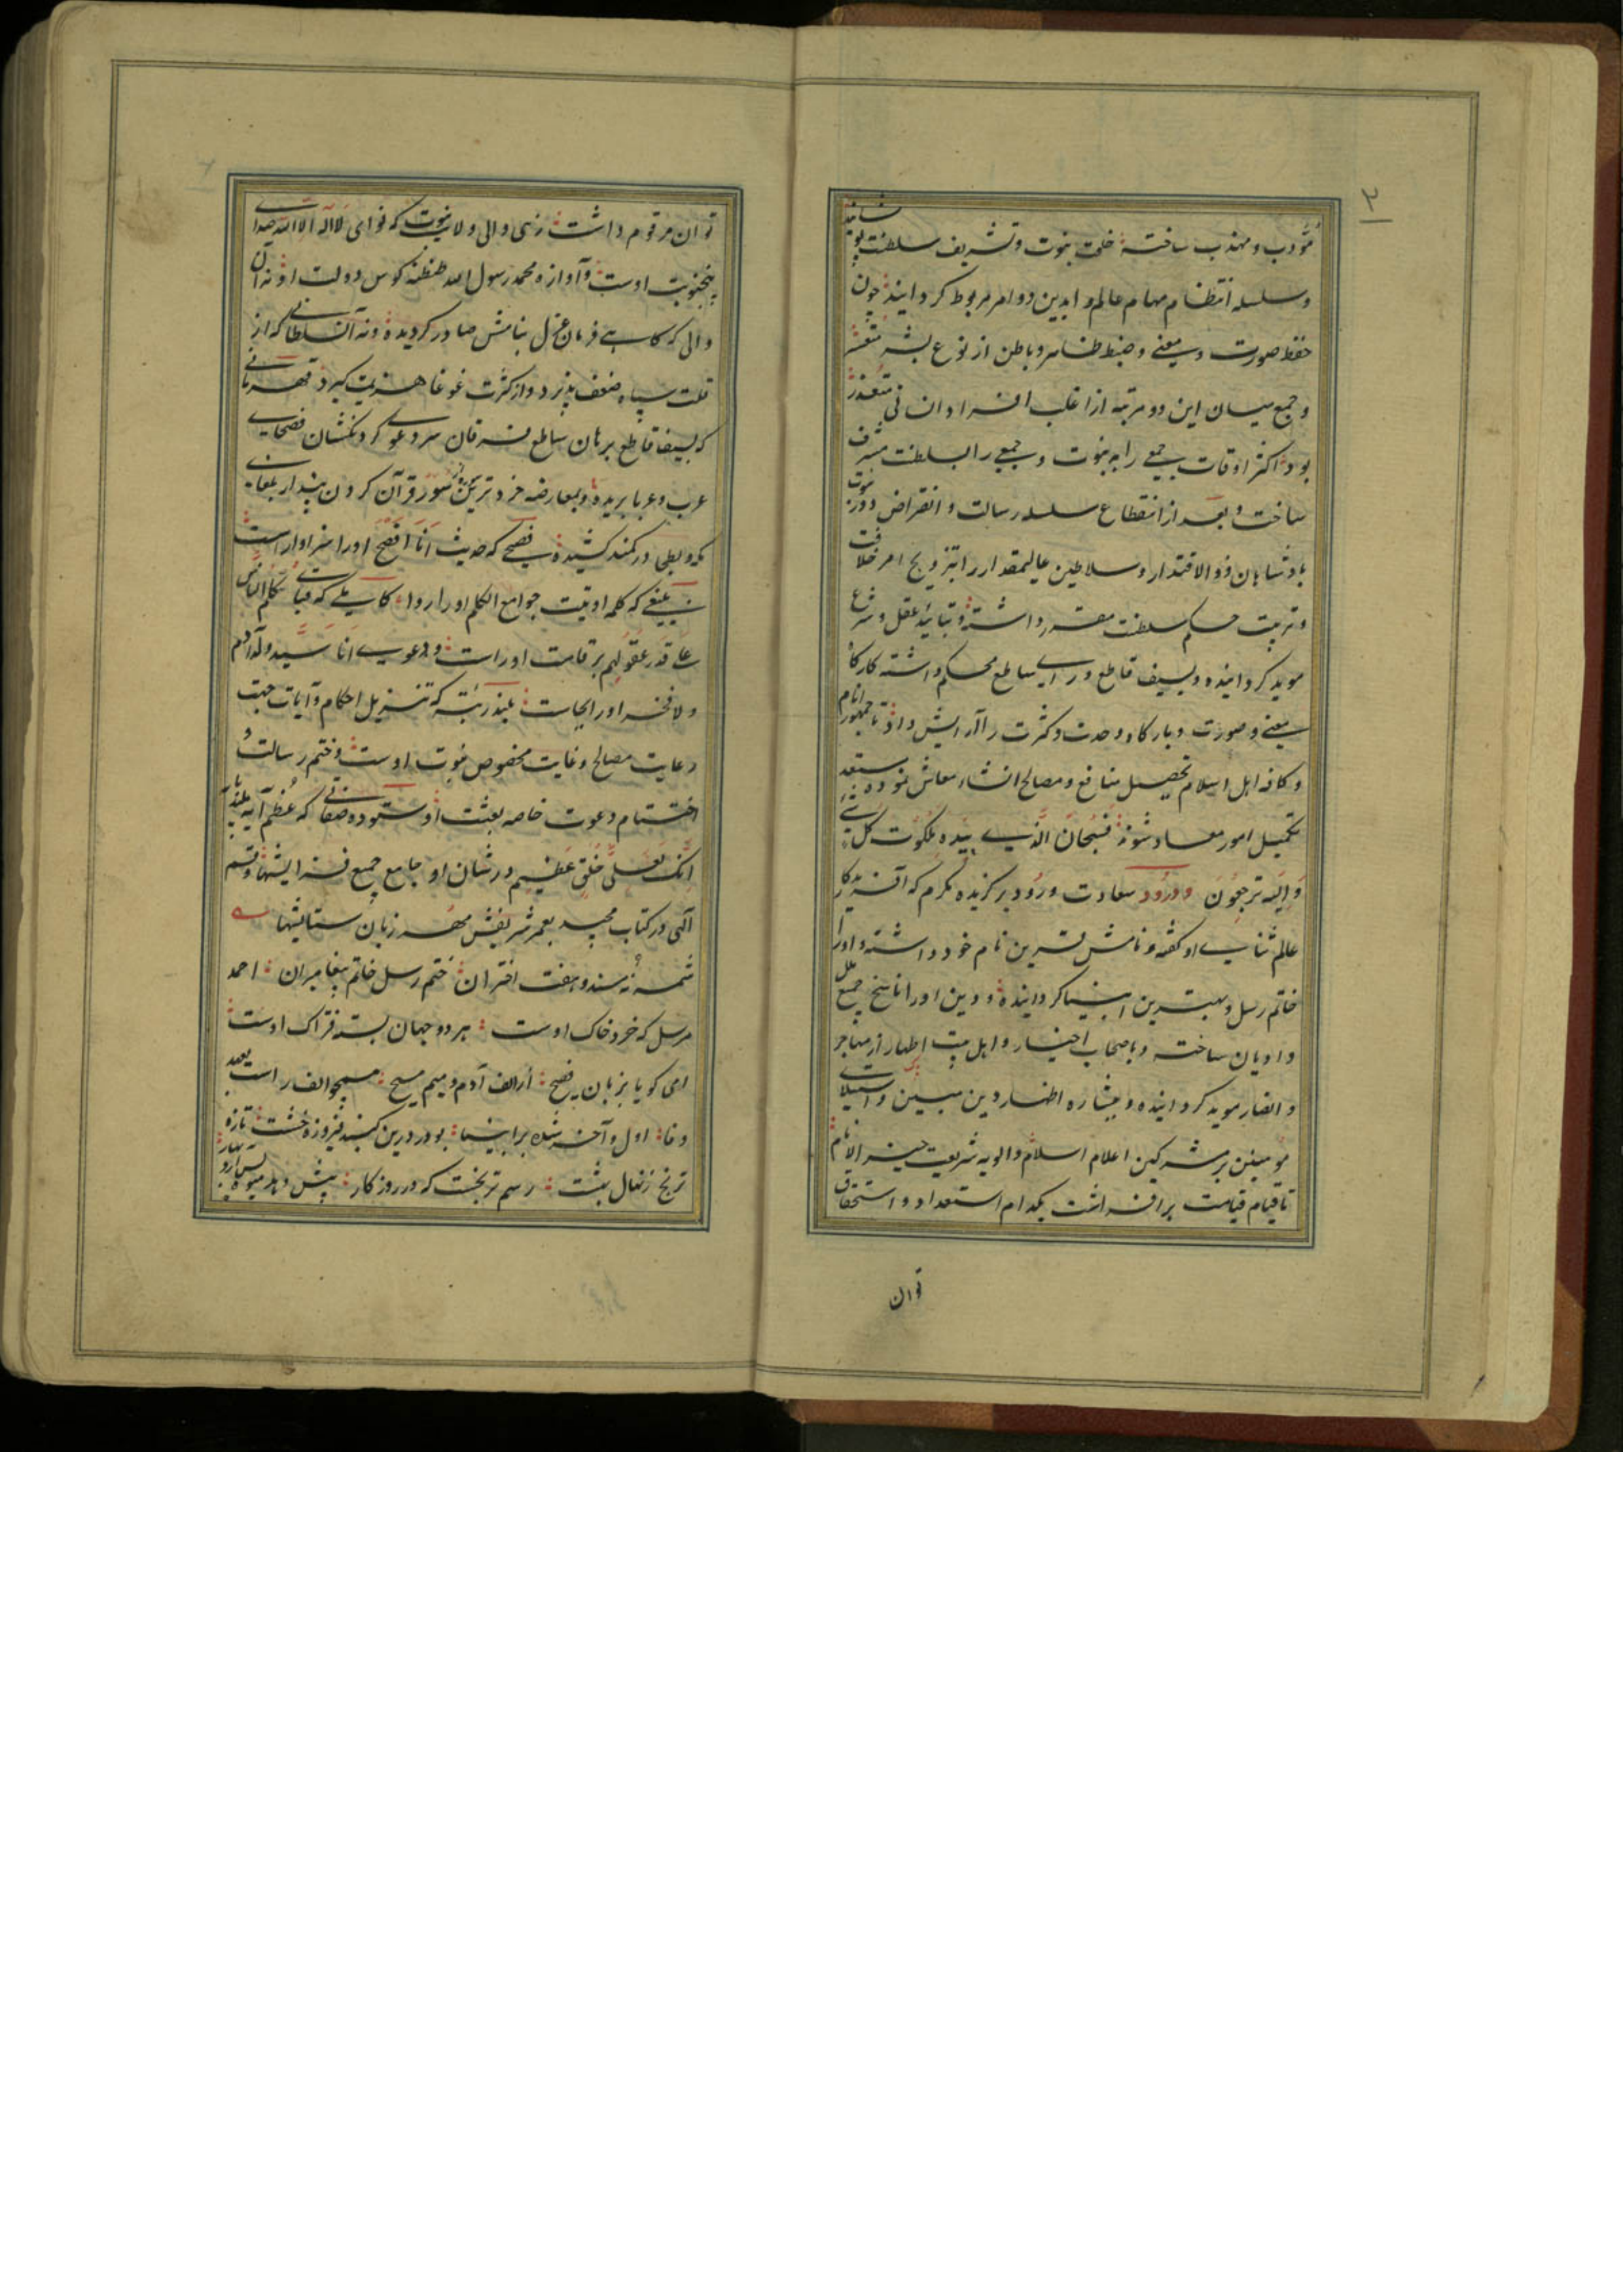 ۲
مؤدب و مهذب ساخته خلعت نبوت و تشریف سلطنت پوشانید
و سلسله انتظام مهام عالم را بدین دو امر مربوط گردانید چون
حفظ صورت و معنی و ضبط ظاهر و باطن از نوع بشر متعسّر
و جمع میان این دو مرتبه از اغلب افراد انسانی متعذر
بود اکثر اوقات جمعی را به نبوت و جمعی را بسلطنت مشرف
ساخت و بعد از انقطاع سلسله رسالت و انقراض دور نبوت
پادشاهان ذو الاقتدار و سلاطین عالیمقدار را بترویج امر خلافت
و تربیت حکم سلطنت مقرر داشته و بتائید عقل و شرع
موید گردانیده و بسیف قاطع و رای ساطع محکم داشته کارگاه
معنی و صورت و بارگاه وحدت و کثرت را آرایش داد تا جمهور انام
و کافه اهل اسلام تحصیل منافع و مصالح انشاء معاش نموده مستعد
تکمیل امور معاد شوند فَسُبحانَ الَّذی بِیَدِه مَلَکُوت کُلِّ شئ
وَ اِلَیه تُرجَعُونَ و درود سعادت ورود بر گزیده مکرم که آفریدگار
عالم ثنای او گفته و نامش قرین نام خود داشته و او را
خاتم رسل و بهترین انبیا گردانیده و دین او را ناسخ جمیع ملل
و ادیان ساخته و باصحاب اخیار و اهل بیت اطهار از مهاجر
و انصار موید گردانیده و بشاره اظهار دین مبین و استیلای
مؤمنین بر مشرکین اعلام اسلام و الویه شریعت خیر الانام
تا قیام قیامت بر افراشت بکدام استعداد و استحقاق
توان
توان مرقوم داشت زهی والی ولایت نبوت که نوای لا اله الا الله صدای
پنجنوبت اوست و آوازه محمد رسول الله طنطنه کوس دولت او نه آن
والی که گاهی فرمان عزل بنامش صادر گردیده و نه آن سلطانی که از
قلت سپاه ضعف پذیرد و از کثرت غوغا هزیمت گیرد قهرمانی
که بسیف قاطع برهان ساطع فرقان سر دعوی گردنکشان فصحای
عرب و عربا بریده و بمعارضه خردترین سُوَر قرآن گردن پندار بلغای
مکه و بطحی در کمند کشیده فصیحی که حدیث اَنَا اَفصَحُ او را سزاوار است
بلیغی که کلمه اوتیت جوامع الکلم او را روا کاملی که قبای کَلِّم النّاس
عَلی قدر عقولهم بر قامت او راست و دعوی اَنَا سَیّد ولد آدم
و لا فخر او را بجاست بلند رتبتی که تنزیل احکام و آیات جهت
رعایت مصالح و غایت مخصوص نبوت اوست و ختم رسالت و
اختتام دعوت خاصه بعثت او ستوده صفاتی که عُظم آیه بلند پایه
اِنّک لَعَلی خُلُقٍ عَظیم در شان او جامع جمیع فزایشهاو قسم
الهی در کتاب مجید بعمر شریفش مهر زبان ستایشهای
شمسه نه مسند و هفت اختران ختم رسل خاتم پیغامبران احمد
مرسل که خرد خاک اوست هر دو جهان بسته فتراک اوست
امی گویا بزبان فصیح از الف آدم و میم مسیح همچو الف راست بعهد
وفا اول و آخر شده بر انبیا بود درین گنبد فیروزه خشت تازه
ترنج ز نهال بهشت رسم ترنجست که در روزگار پیش دهد میوه پس آرد بهار